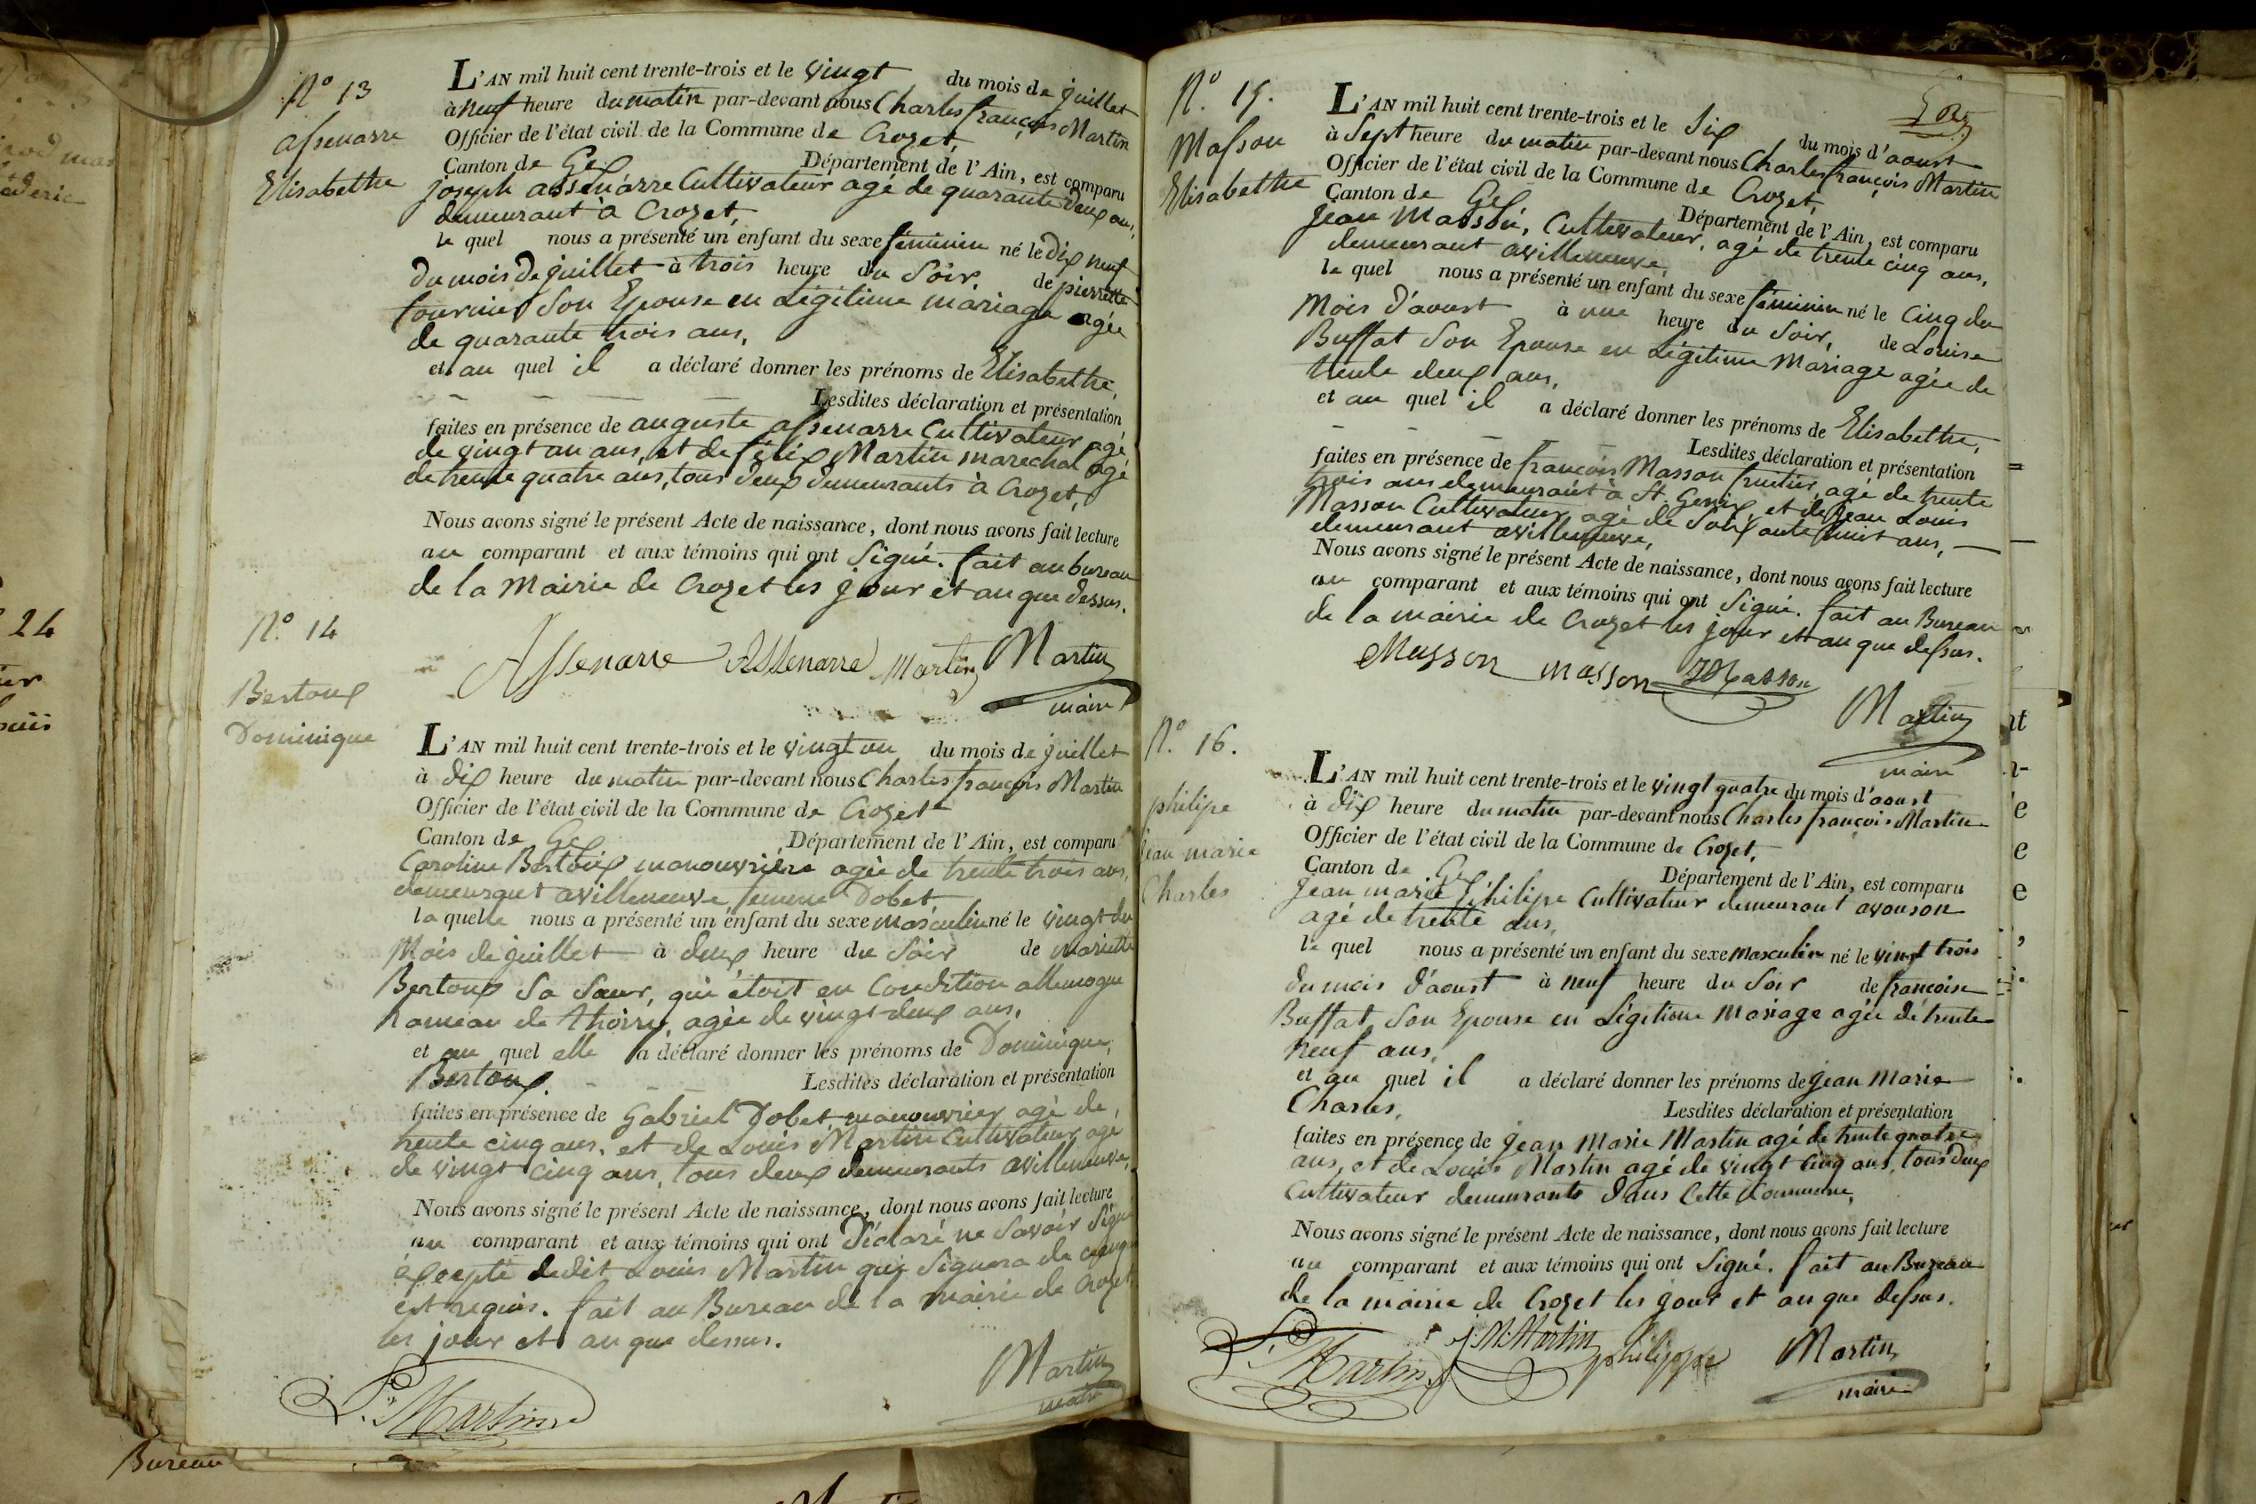 N° 13
assenarre
Elisabethe
L'AN mil huit cent trente-trois et le vingt du mois de juillet
à neuf heure du matin par-devant nous Charles françois Martin
Officier de l'état civil de la Commune de Crozet,
Canton de Gex Département de l'Ain, est comparu
joseph assenarre Cultivateur agé de quarante deux ans,
demeurant à Crozet,
le quel nous a présenté un enfant du sexe féminin né le dix neuf
du mois de juillet à trois heure du Soir, de pierrette
fournier Son Epouse en Légitime mariage agée
de quarante trois ans,
et au quel il a déclaré donner les prénoms de Elisabethe,
Lesdites déclaration et présentation
faites en présence de auguste assenarre Cultivateur agé
de vingt un ans, et de félix Martin marechal agé
de trente quatre ans, tous deux demeurants à Crozet,
Nous avons signé le présent Acte de naissance, dont nous avons fait lecture
au comparant et aux témoins qui ont Signé. fait au bureau
de la Mairie de Crozet les jour et an que dessus.
Assenarre Assenarre Martin Martin
maire
N° 14
Bertoux
Dominique
L'AN mil huit cent trente-trois et le vingt un du mois de juillet
à dix heure du matin par-devant nous Charles françois Martin
Officier de l'état civil de la Commune de Crozet
Canton de Gex Département de l'Ain, est comparu
Caroline Bertoux manouvrière agée de trente trois ans,
demeurant avilleneuve, femme Dobet
la quelle nous a présenté un enfant du sexe masculin né le vingt du
Mois de juillet à deux heure du Soir de mariette
Bertoux Sa Sœur, qui étoit en Condition allemogne
hameau de thoiry, agée de vingt deux ans,
et au quel elle a déclaré donner les prénoms de Dominique,
Bertoux. Lesdites déclaration et présentation
faites en présence de Gabriel Dobet manouvrier agé de,
trente cinq ans, et de Louis Martin Cultivateur agé
de vingt cinq ans, tous deux demeurants avilleneuve,
Nous avons signé le présent Acte de naissance, dont nous avons fait lecture
au comparant et aux témoins qui ont Déclaré ne Savoir Signer
excepté ledit Louis Martin qui Signera de ce
est requis. fait au Bureau de la mairie de Crozet
les jour et an que dessus.
L. Martin Martin
maire
N° 15.
Masson
Elisabethe
L'AN mil huit cent trente-trois et le Six du mois d'aoust
à Sept heure du matin par-devant nous Charles françois Martin
Officier de l'état civil de la Commune de Crozet,
Canton de Gex Département de l'Ain, est comparu
Jean Masson, Cultivateur, agé de trente cinq ans,
demeurant avilleneuve,
le quel nous a présenté un enfant du sexe féminin né le cinq du
Mois d'aoust à une heure du Soir, de Louise
Buffat Son Epouse en Légitime Mariage agée de
trente deux ans,
et au quel il a déclaré donner les prénoms de Elisabethe,
Lesdites déclaration et présentation
faites en présence de françois Masson fruitier, agé de trente
trois ans demeurant à St. Genix, et de Jean Louis
Masson Cultivateur agé de Soixante huit ans,
demeurant avilleneuve,
Nous avons signé le présent Acte de naissance, dont nous avons fait lecture
au comparant et aux témoins qui ont Signé. fait au Bureau
de la mairie de Crozet les jour et an que dessus.
Masson masson Masson
Martin
maire
N° 16.
philipe
jean marie
Charles
L'AN mil huit cent trente-trois et le vingt quatre du mois d'aoust
à dix heure du matin par-devant nous Charles françois Martin
Officier de l'état civil de la Commune de Crozet,
Canton de Gex Département de l'Ain, est comparu
Jean marie philipe Cultivateur demeurant avouson
agé de trente ans,
le quel nous a présenté un enfant du sexe masculin né le vingt trois
du mois d'aoust à neuf heure du Soir de françoise
Buffat Son Epouse en Légitime Mariage agée de trente
neuf ans,
et au quel il a déclaré donner les prénoms de jean Marie
Charles, Lesdites déclaration et présentation
faites en présence de jean Marie Martin agé de trente quatre
ans, et de Louis Martin agé de vingt cinq ans, tous deux
Cultivateur demeurants dans Cette Commune,
Nous avons signé le présent Acte de naissance, dont nous avons fait lecture
au comparant et aux témoins qui ont Signé. fait au Bureau
de la mairie de Crozet les jour et an que dessus.
L. Martin j. M. Martin philippe Martin
maire
24
Bureau